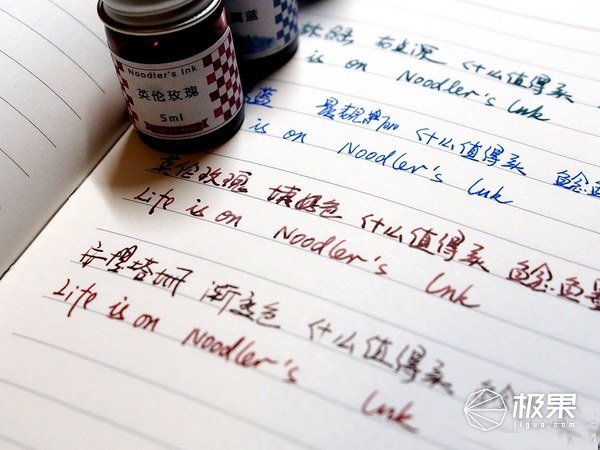 Noodler's Ink
英伦玫瑰
5ml
蓝
什么值得买
is on Noodler's Ink
蓝 什么值得买 鲶鱼
is on Noodler's Ink
英伦玫瑰 什么值得买 鲶鱼墨
Life is on Noodler's Ink
渐变色 什么值得买 鲶
Life is on Noodler's Ink
极果
jiguo.com